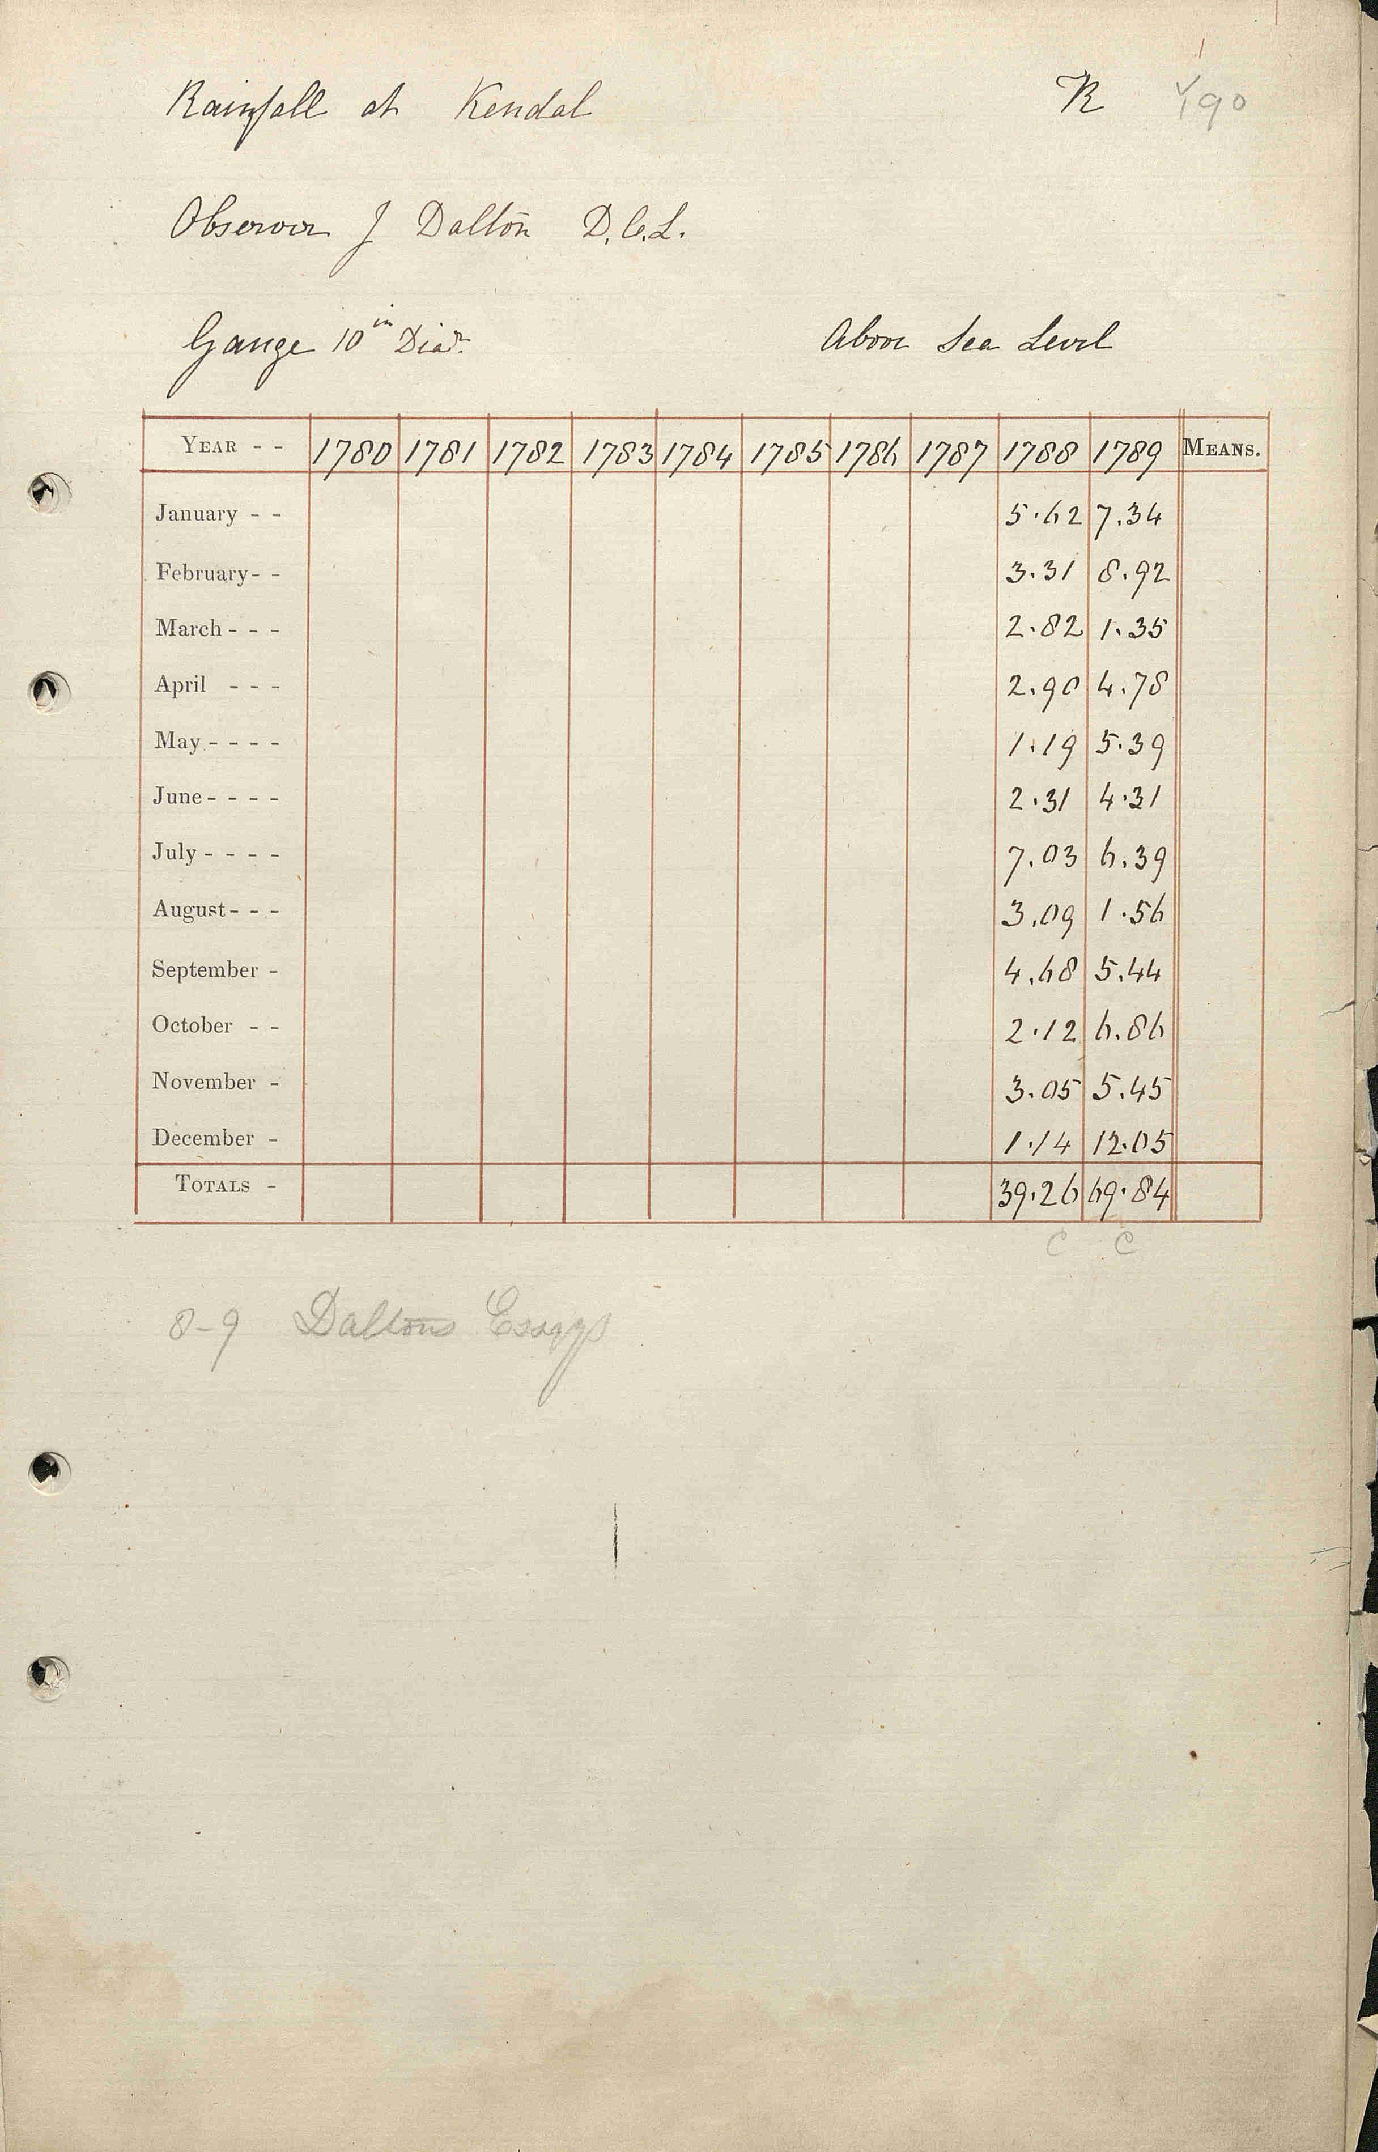 Rainfall at Kendal R
Observer J Dalton D.C.L.
Gauge 10in Diar. Above Sea Level
YEAR - - 1780 1781 1782 1783 1784 1785 1786 1787 1788 1789 MEANS.
January - - 5.62 7.34
February - - 3.31 8.92
March - - - 2.82 1.35
April - - - 2.90 4.78
May - - - - 1.19 5.39
June - - - - 2.31 4.31
July - - - - 7.03 6.39
August - - - 3.09 1.56
September - 4.68 5.44
October - - 2.12 6.86
November - 3.05 5.45
December - 1.14 12.05
TOTALS - 39.26 69.84
C C
8-9 Daltons Essays